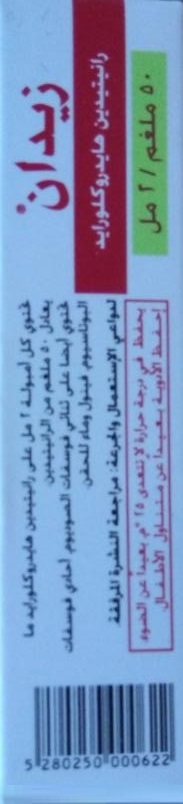 زيدان®
رانيتيدين هايدروكلورايد
٥٠ ملغم / ٢ مل
تحتوي كل أمبولة ٢ مل على رانيتيدين هايدروكلورايد ما
يعادل ٥٠ ملغم من الرانيتيدين.
تحتوي أيضا على ثنائي فوسفات الصوديوم، أحادي فوسفات
البوتاسيوم، فينول وماء للحقن.
لدواعي الإستعمال والجرعة: مراجعة النشرة المرفقة
يحفظ في درجة حرارة لا تتعدى ٢٥ °م، بعيداً عن الضوء
إحفظ الأدوية بعيداً عن متناول الأطفال
5 280250 000622